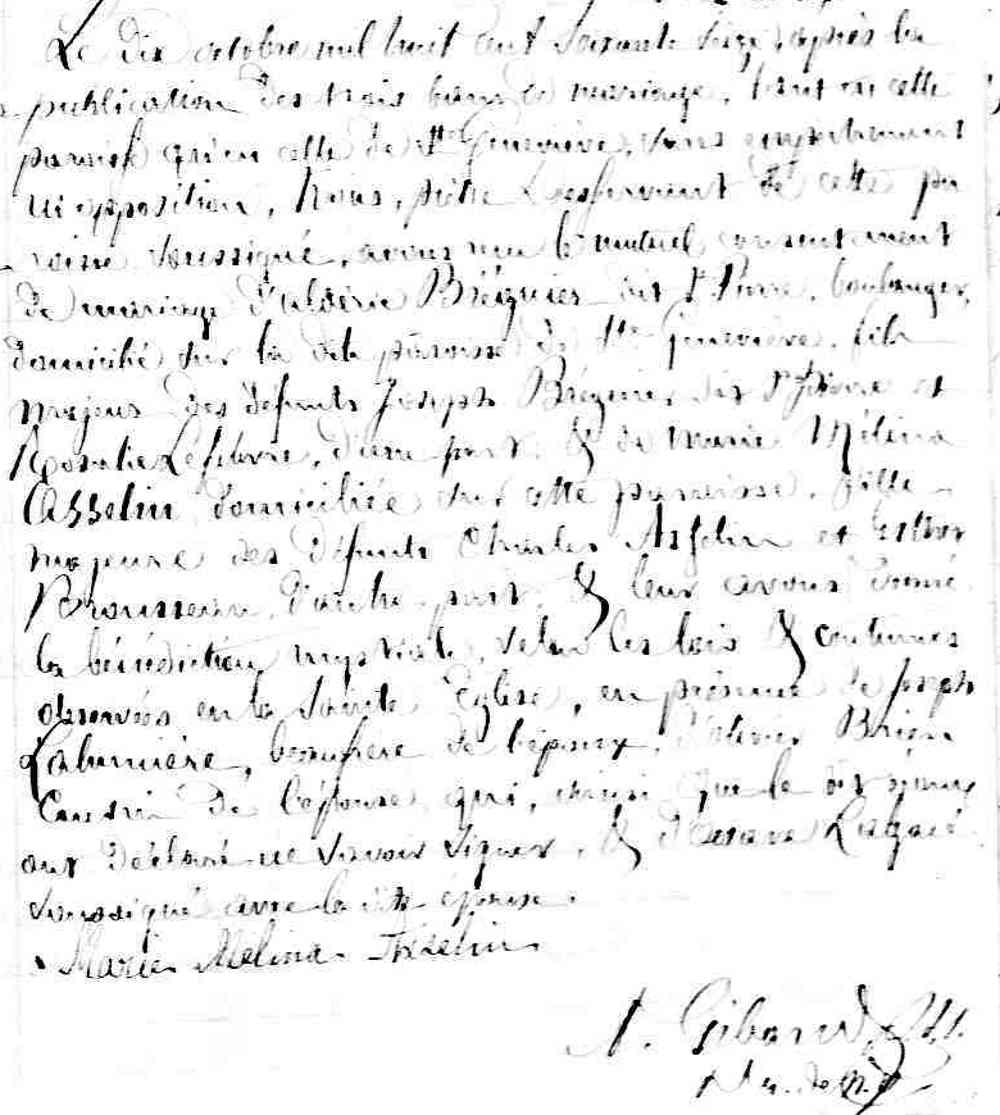 Le dix octobre mil huit cent soixante seize, après la
publication des trois bans de mariage, tant en cette
paroisse qu'en celle de Ste Geneviève, sans empêchement
ni opposition, Nous, prêtre desservant de cette pa
roisse soussigné, avons reçu le mutuel consentement
de mariage d'Uldéric Bréguier dit St Pierre, boulanger,
domicilié sur la dite paroisse de Ste Geneviève, fils
majeur des défunts Joseph Bréguier dit St Pierre et
Rosalie Lefebvre, d'une part, & de Marie Mélina
Asselin domiciliée sur cette paroisse, fille
majeure des défunts Charles Asselin et Esther
Brousseau, d'autre part, & leur avons donné
la bénédiction nuptiale, selon les lois & coutumes
observées en la Sainte Eglise, en présence de Joseph
Labumière, beaufrère de l'époux, d'Olivier Brien
Cousin de l'épouse, qui, ainsi que le dit époux
ont déclaré ne savoir signer, &
soussigné avec la dite épouse.
Marie Melina Asselin
A. Giband